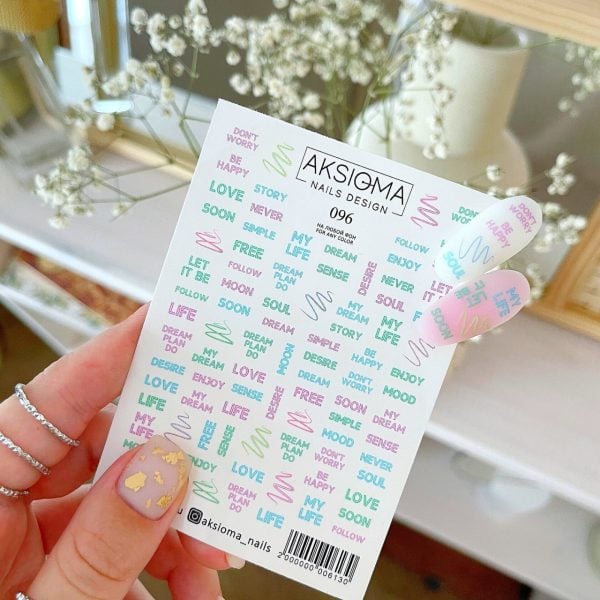 DON'T
WORRY
BE
HAPPY
AKSIOMA
NAILS DESIGN
096
НА ЛЮБОЙ ФОН
FOR ANY COLOR
LOVE
STORY
SOON
NEVER
SIMPLE
FREE
MY
LIFE
DREAM
SENSE
FOLLOW
ENJOY
LET
IT BE
FOLLOW
MOON
DREAM
PLAN
DO
DESIRE
NEVER
SOUL
LET
IT BE
FOLLOW
SOON
SOUL
MY
DREAM
LIFE
DREAM
STORY
DREAM
PLAN
DO
DREAM
PLAN
DO
SIMPLE
BE
HAPPY
MY
DREAM
MOON
DESIRE
ENJOY
DESIRE
ENJOY
LOVE
DREAM
DON'T
WORRY
MOOD
LOVE
MY
DREAM
SENSE
DESIRE
FREE
SOON
MY
LIFE
LIFE
SIMPLE
SENSE
FREE
SENSE
DREAM
PLAN
DO
MOOD
MOON
ENJOY
LOVE
DON'T
WORRY
NEVER
SOUL
DREAM
PLAN
DO
BE
HAPPY
LOVE
LIFE
MY
LIFE
SOON
FOLLOW
u
@aksioma_nails
2000000 006130
DON'T
WORRY
BE
HAPPY
SOUL
MY
LIFE
SOON